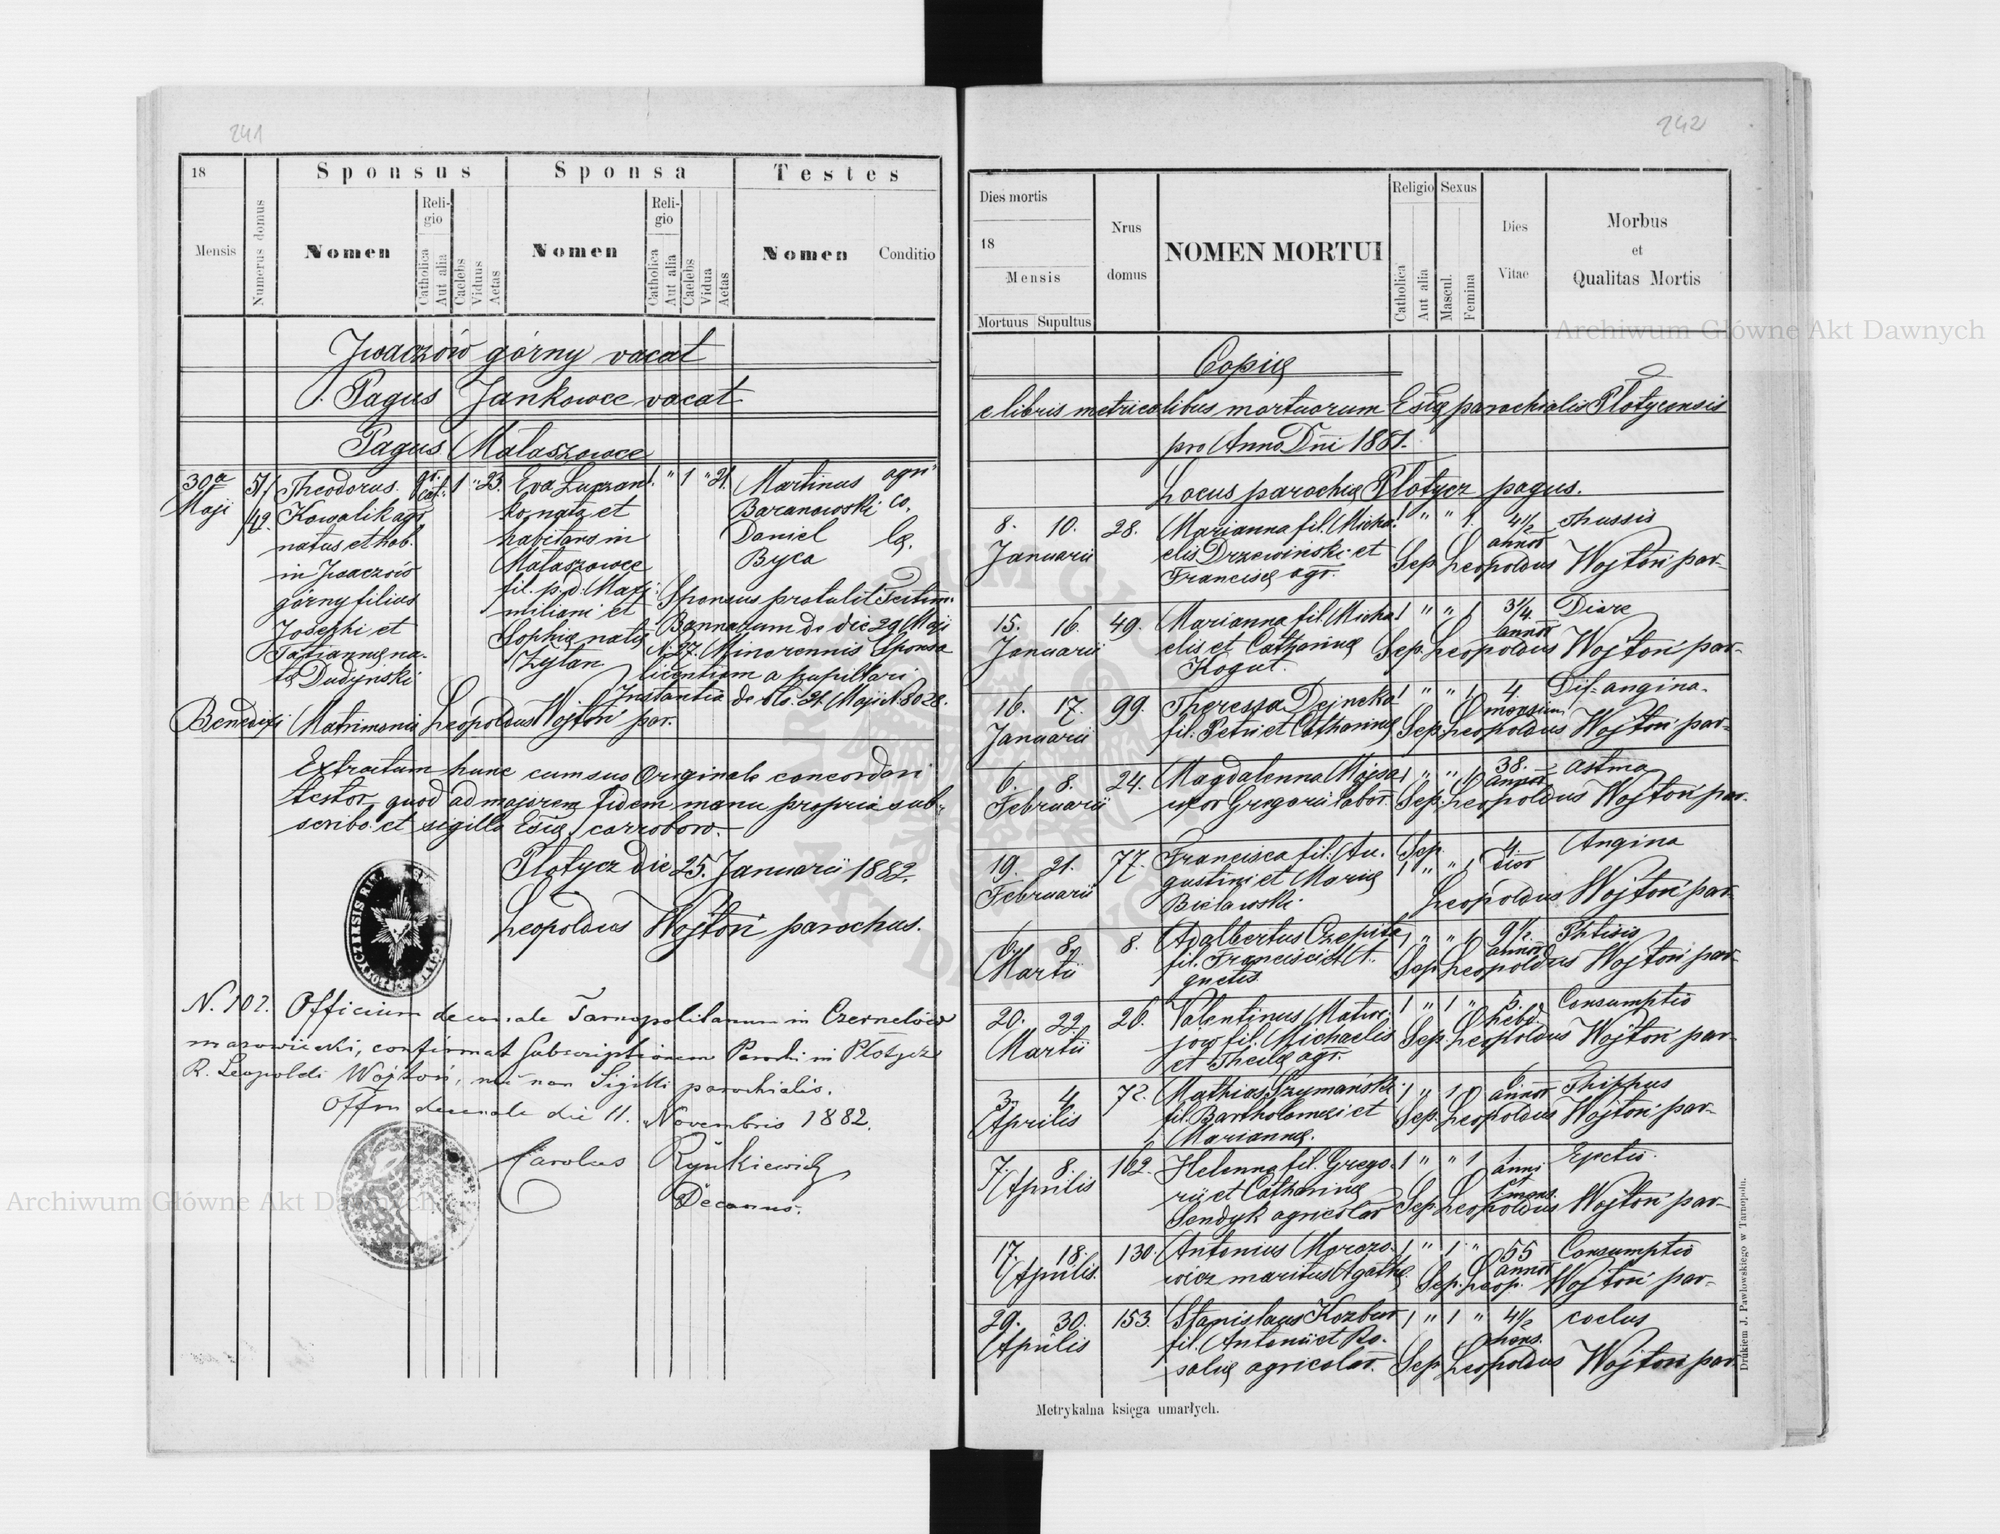 241
18
Mensis
Numerus domus
Sponsus
Nomen
Reli-
gio
Catholica
Aut alia
Caelebs
Viduus
Aetas
Sponsa
Nomen
Reli-
gio
Catholica
Aut alia
Caelebs
Vidua
Aetas
Testes
Nomen
Conditio
Jwaczów górny vacat
Pagus Jankowce vacat
Pagus Małaszowce
30a
Maji
57/
42
Theodorus
Kowalik agr.
natus et hab.
in Jwaczów
górny filius
Josephi et
Tatiannę na-
tę Dudynski
1 " 23.
Eva Łuczan
ko nata et
habitans in
Małaszowce
fil. p. d. Maxi-
miliani et
Sophię natę
Zytan
1 " 1 " 21.
Martinus
Baranowski
Daniel
Byca
agri
co,
lę.
Sponsus protulit Testim.
Bannorum de die 29 Maji
N. 27. Minorennis Sponsa
licentiam a pupillari
Instantia de dto. 21. Maji N. 8028.
Benedixi Matrimonii Leopoldus Wojtoń par.
Extractum hunc cum suo Originale concordari
testor, quod ad majorem fidem manu propria sub-
scribo et sigillo Esię corroboro.
Płotycz die 25. Januarii 1882.
Leopoldus Wojtoń parochus.
N. 102. Officium decanale Tarnopolitanum in Czernelów
mazowiecki, confirmat subscriptionem Parochi in Płotycz
R. Leopoldi Wojtoń, nec non Sigilli parochialis.
Offm decanale die 11. Novembris 1882.
Carolus Rynkiewicz
Decanus.
242
Dies mortis
18
Mensis
Mortuus Supultus
Nrus
domus
NOMEN MORTUI
Religio
Catholica
Aut alia
Sexus
Mascul.
Femina
Dies
Vitae
Morbus
et
Qualitas Mortis
Copię
e libris metricalibus mortuorum Esię parochialis Płotycensis
pro Anno Dni 1881.
Locus parochię Płotycz pagus.
8. 10. 28. Marianna fil. Micha- 1 " " 1. 4½ Thussis
Januarii elis Drzewiński et Sep. Leopoldus Wojtoń par-
annor
Francisę agr.
15. 16. 49. Marianna fil. Micha- 1 " " 1 3¼ Diare
Januarii elis et Catharinę Sep. Leopoldus Wojtoń par-
annor
Kogut.
16. 17. 99. Theressa Dejneka 1 " " 1 4. Dif= angina.
Januarii fil. Petri et Catharinę Sep. Leopoldus Wojtoń par-
mensium
6. 8. 24. Magdalenna Mojsa 1 " " 1 38. astma
Februarii uxor Gregorii labor. Sep. Leopoldus Wojtoń par-
annor
19. 21. 77. Francisca fil. Au- Sep. 1 " " 1 4. Angina
Februarii gustini et Marię Leopoldus Wojtoń par-
dior
Bielawski.
6 8. 8. Adalbertus Czepita 1 " " 1 9½. Phtisis
Martii fil. Francisci et A- Sep. Leopoldus Wojtoń par-
annor
gnetis
20. 22. 26. Valentinus Matwe- 1 " 1 " 5. Consumptio
Martii jow fil. Michaelis Sep. Leopoldus Wojtoń par-
hebd.
et Theclę agr.
3. 4 72. Mathias Szymański 1 " 1 6 Thiphus
Aprilis fil. Bartholomei et Sep. Leopoldus Wojtoń par-
annor
Mariannę.
7. 8. 102. Helenna fil. Grego- 1 " " 1 1
Aprilis rii et Catharinę Sep. Leopoldus Wojtoń par-
anni
Sendyk agricolar
17. 18. 130. Antonius Morozo- 1 " 1 " 55 Consumptio
Aprilis. wicz maritus Agathę Sep. Leop. Wojtoń par-
annor
29. 30. 153. Stanislaus Kozbur 1 " 1 " 4½ coclus
Aprilis fil. Antonii et Ro- Sep. Leopoldus Wojtoń par
mens.
salię agricolar.
Metrykalna księga umarłych.
Drukiem J. Pawłowskiego w Tarnopolu.
Archiwum Główne Akt Dawnych
Archiwum Główne Akt Dawnych